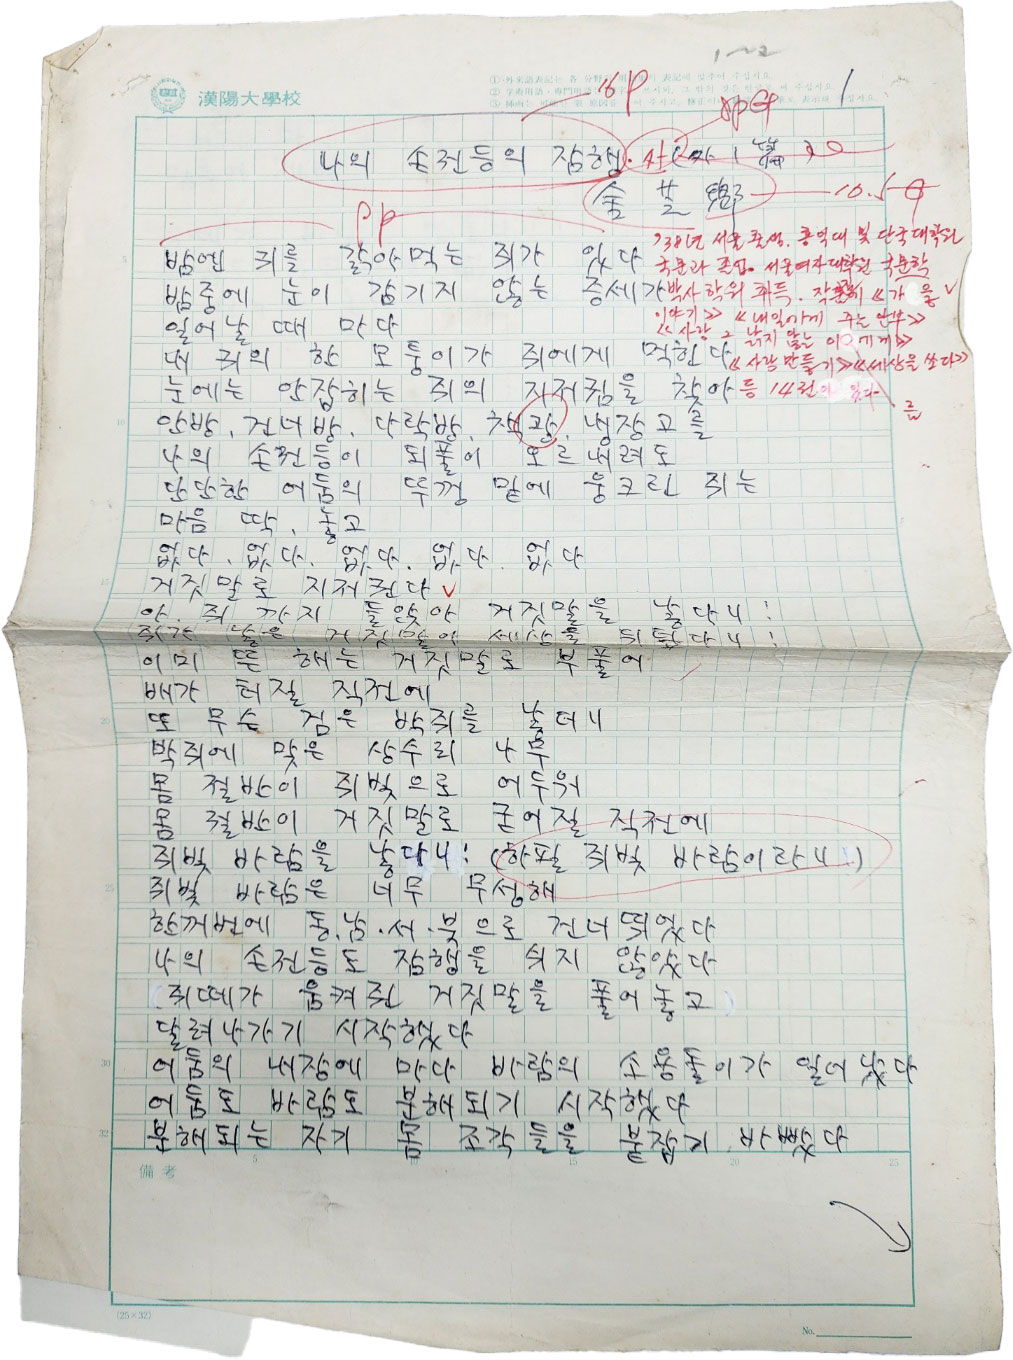 1~2
漢陽大學校
16p
1
나의 손전등의 잠행·산
金芝鄕
10.5
8p
밤엔 쥐를 갉아먹는 쥐가 있다
밤중에 눈이 감기지 않는 증세가
일어날 때 마다
내 귀의 한 모퉁이가 쥐에게 먹힌다
눈에는 안잡히는 쥐의 지저귐을 찾아
안방, 건너방, 다락방, 책광, 냉장고를
나의 손전등이 되풀이 오르내려도
단단한 어둠의 뚜껑 밑에 웅크린 쥐는
마음 딱, 놓고
없다. 없다. 없다. 없다. 없다
거짓말로 지저권다
아, 쥐 까지 들앉아 거짓말을 낳다니!
쥐가 낳은 거짓말이 세상을 뒤덮다니!
이미 뜬 해는 거짓말로 부풀어
배가 터질 직전에
또 무슨 검은 박쥐를 낳더니
박쥐에 맞은 상수리 나무
몸 절반이 쥐빛으로 어두워
몸 절반이 거짓말로 굳어질 직전에
쥐빛 바람을 낳다니! (하필 쥐빛 바람이라니)
쥐빛 바람은 너무 무성해
한꺼번에 동.남.서.북으로 건너뛰었다
나의 손전등도 잠행을 쉬지 않았다
(쥐떼가 움켜쥔 거짓말을 풀어놓고)
달려나가기 시작했다
어둠의 내장에 마다 바람의 소용돌이가 일어났다
어둠도 바람도 분해되기 시작했다
분해되는 자기 몸 조각들을 붙잡기 바빴다
'38년 서울 출생. 홍익대 및 단국대학원
국문과 졸업. 서울여자대학원 국문학
박사학위 취득. 작품에 《가을
이야기》 《내일에게 주는 안부》
《사랑 그 낡지 않는 이에게》
《사랑 만들기》 《세상을 쏘다》
등 14권이 있다
를
5
10
15
20
25
30
32
備考
5
15
20
25
(25×32)
No.